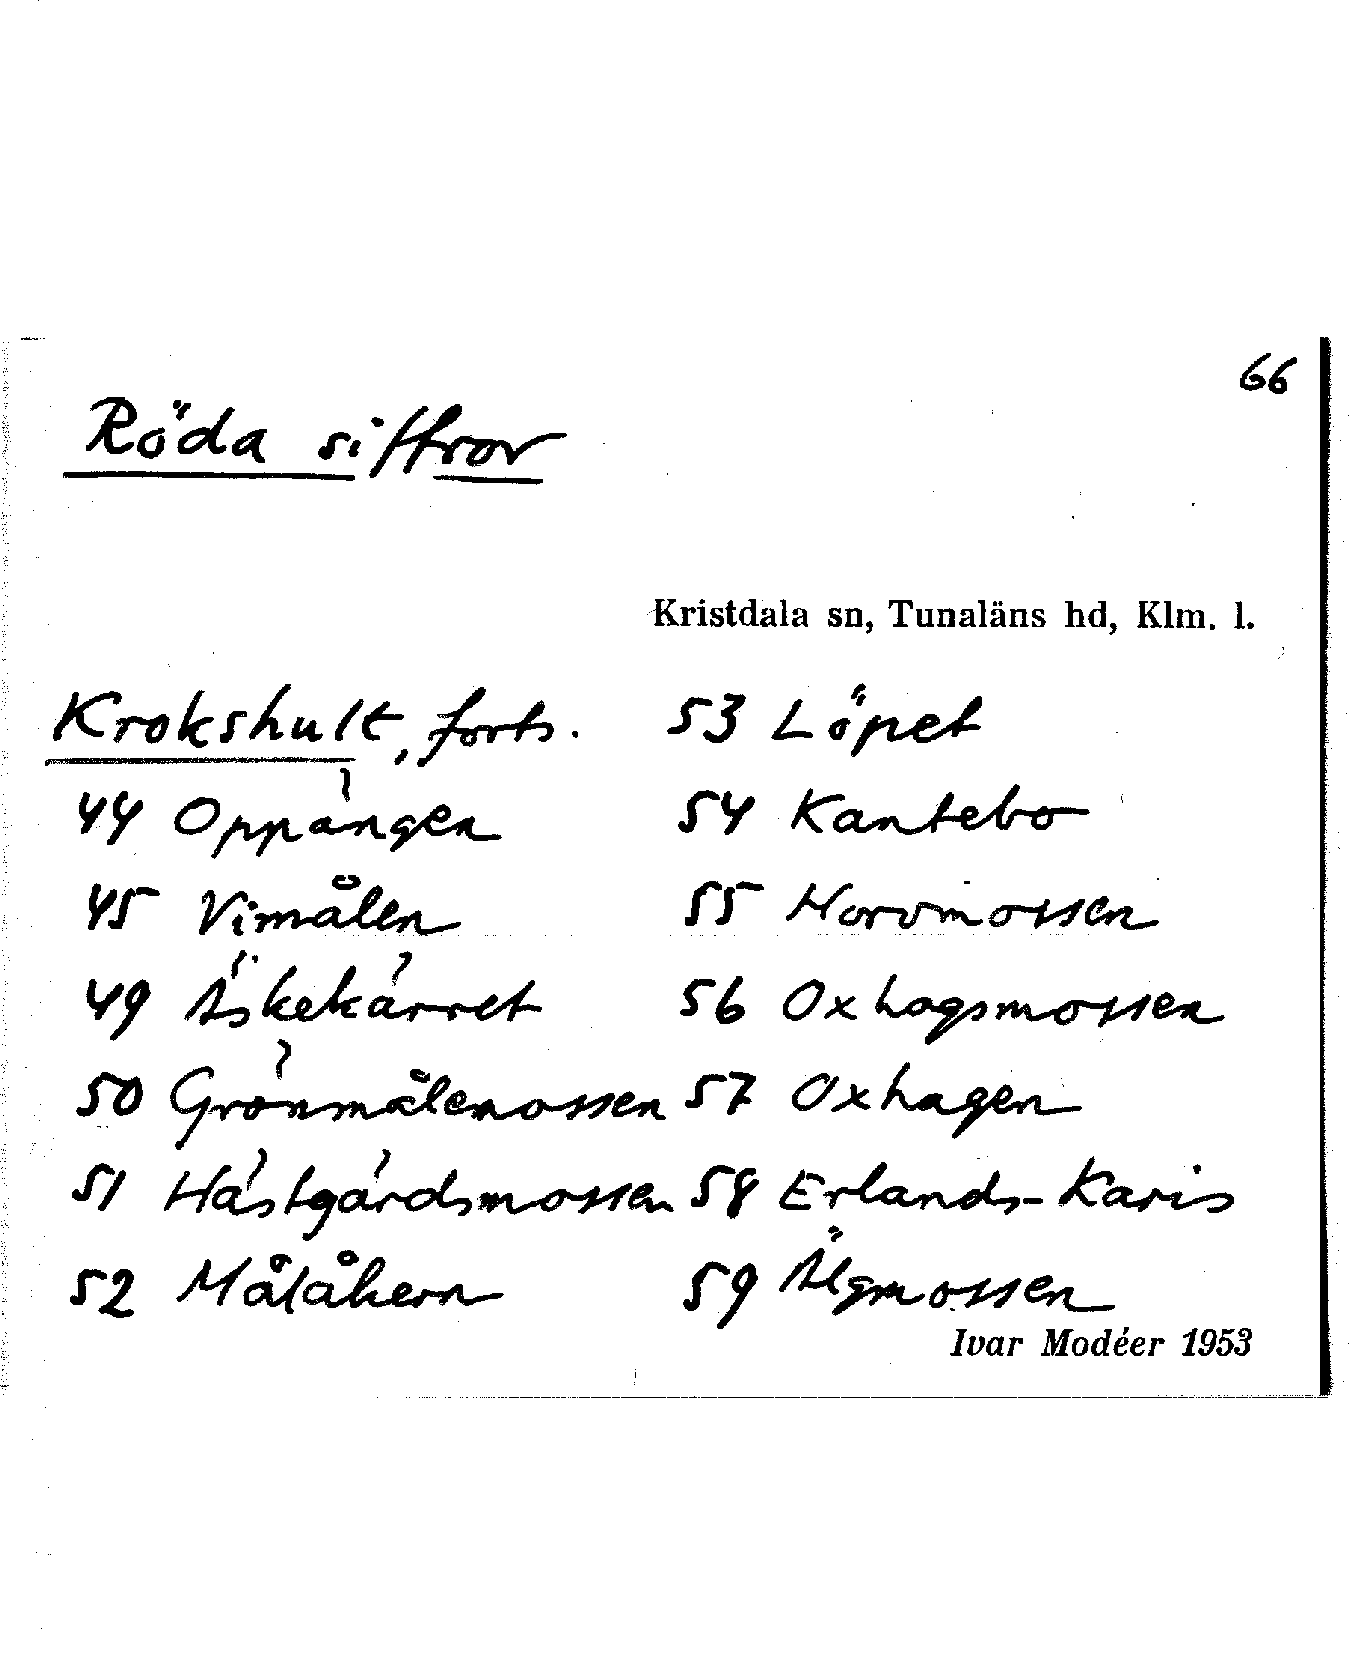 66
Röda siffror
Kristdala sn, Tunaläns hd, Klm. l.
Krokshult, forts.
44 Oppängen
45 Vimålen
49 Äskekärret
50 Grönmålemossen
51 Hästgårdsmossen
52 Målåkern
53 Löpet
54 Kantebo
55 Horvmossen
56 Oxhagsmossen
57 Oxhagen
58 Erlands-Karis
59 Älgmossen
Ivar Modéer 1953